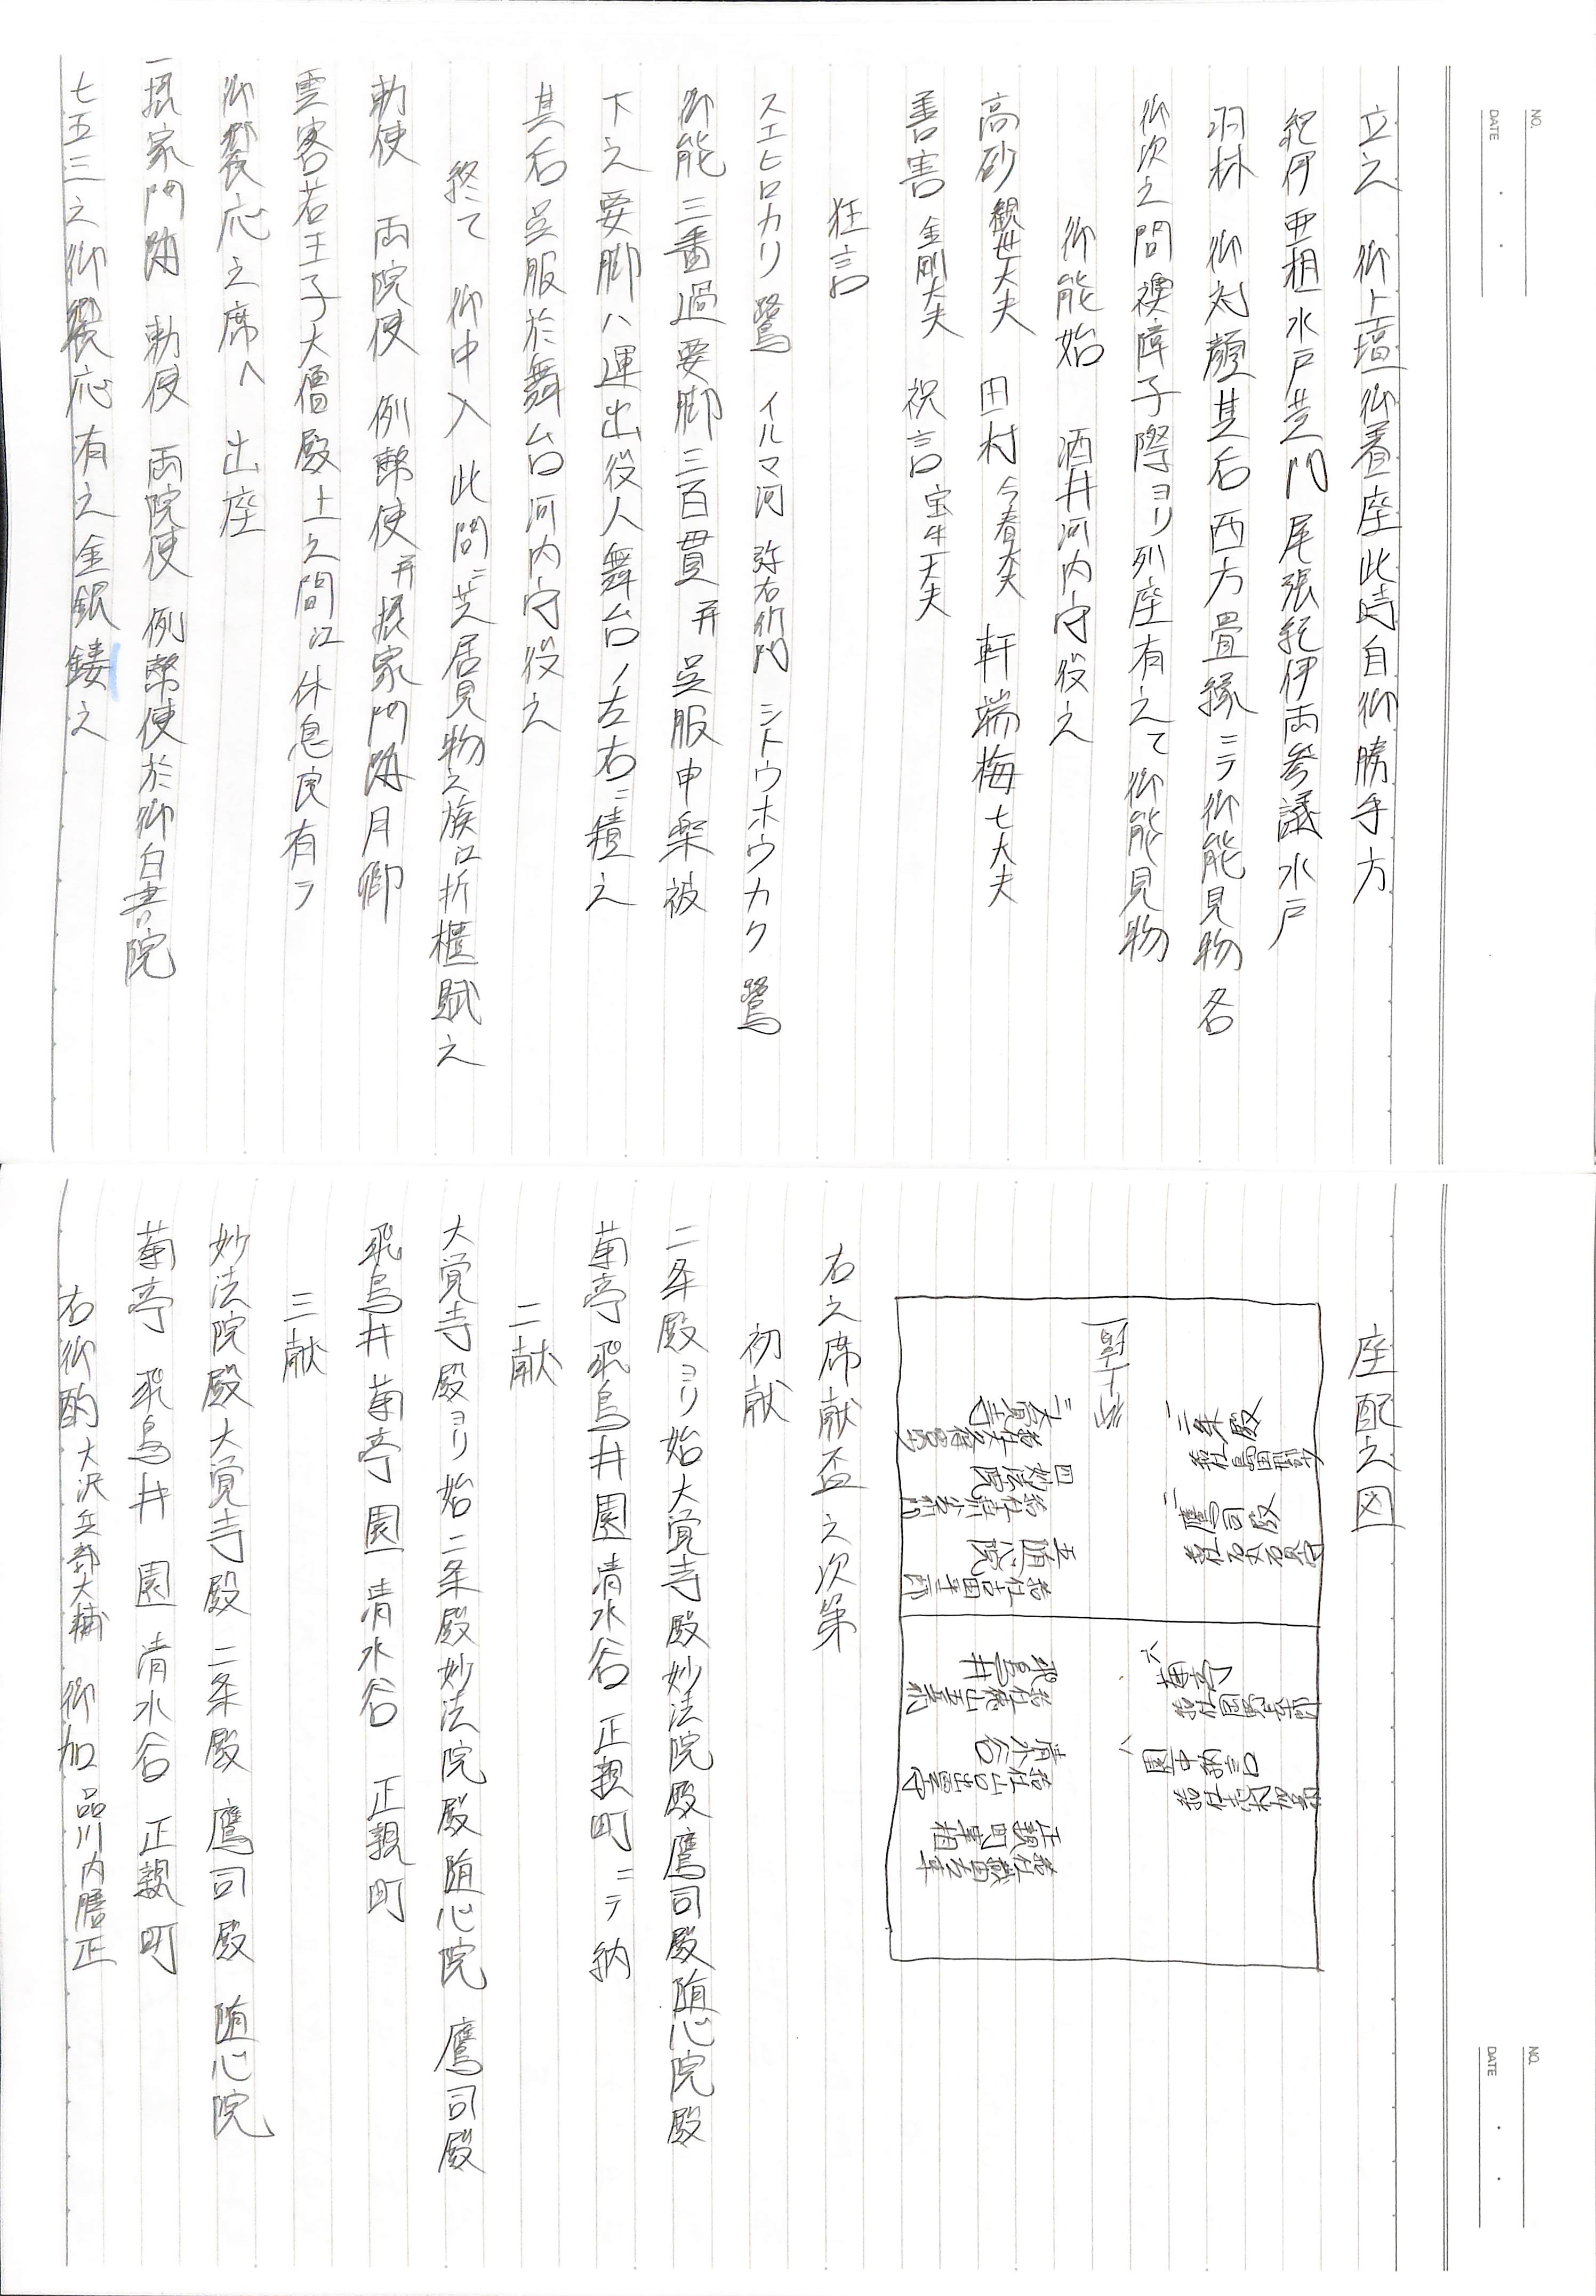 立之　御上壇御着座此時自御勝手方
紀伊亜相水戸黄門　尾張紀伊両参議水戸
羽林　御対顔其后西方畳縁ニテ御能見物各
御次之間襖障子際ヨリ列座有之て御能見物
御能始　酒井河内守役之
高砂　観世大夫　田村　今春大夫　軒端梅　七大夫
善害　金剛大夫　祝言　宝生大夫
狂言
スエヒロカリ　鷺　イルマ河　弥右衛門　シトウホウカク　鷺
御能三番過要脚三百貫并呉服申楽被
下之要脚ハ運出役人舞台ノ左右ニ積之
其后呉服於舞台河内守役之
終て　御中入　此間ニ芝居見物之族江折櫃賦之
勅使　両院使　例幣使并摂家門跡月卿
雲客若王子大僧殿上之間江休息良有テ
御饗応之席へ　出座
摂家門跡　勅使　両院使　例幣使於御白書院
七五三之御饗応有之金銀鏤之
座配之図
一
二条殿
二
鷹司殿
三
大覚寺
四
妙法院
五
随心院
六
菊亭
飛鳥井
八
園中納言
清水谷
正親町宰相
右之席献盃之次第
初献
二条殿ヨリ始大覚寺殿妙法院殿鷹司殿随心院殿
菊亭飛鳥井園清水谷　正親町ニテ納
二献
大覚寺殿ヨリ始二条殿妙法院殿随心院　鷹司殿
飛鳥井　菊亭　園　清水谷　正親町
三献
妙法院殿大覚寺殿　二条殿　鷹司殿　随心院
菊亭　飛鳥井　園　清水谷　正親町
右御酌　大沢兵部大輔　御加　品川内膳正
NO.
DATE
NO.
DATE